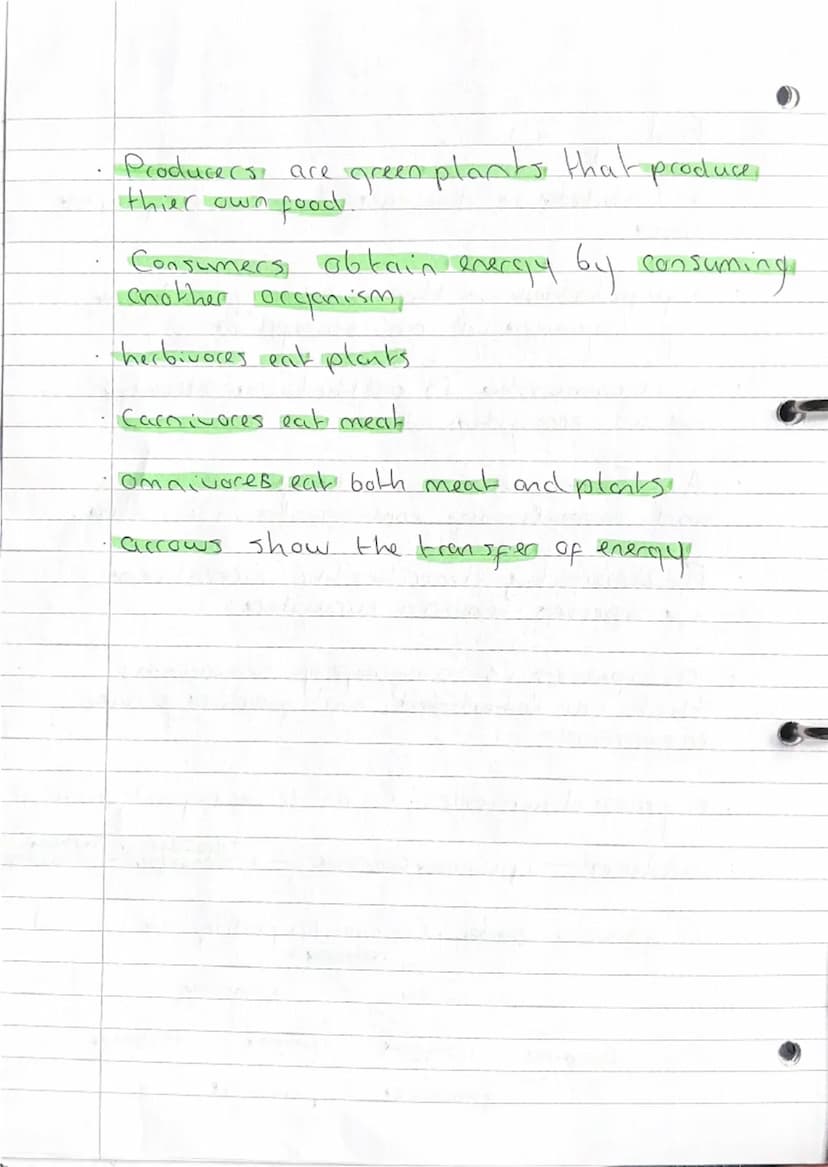 · Producers are green plants that produce
thier own food.
· Consumers obtain energy by consuming
another organism
· herbivores eat plants
· Carnivores eat meat
· omnivores eat both meat and plants
· arrows show the transfer of energy